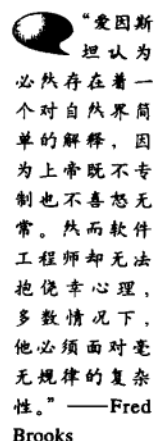 “爱因斯
坦认为
必然存在着一
个对自然界简
单的解释，因
为上帝既不专
制也不喜怒无
常。然而软件
工程师却无法
抱侥幸心理，
多数情况下，
他必须面对毫
无规律的复杂
性。”——Fred
Brooks